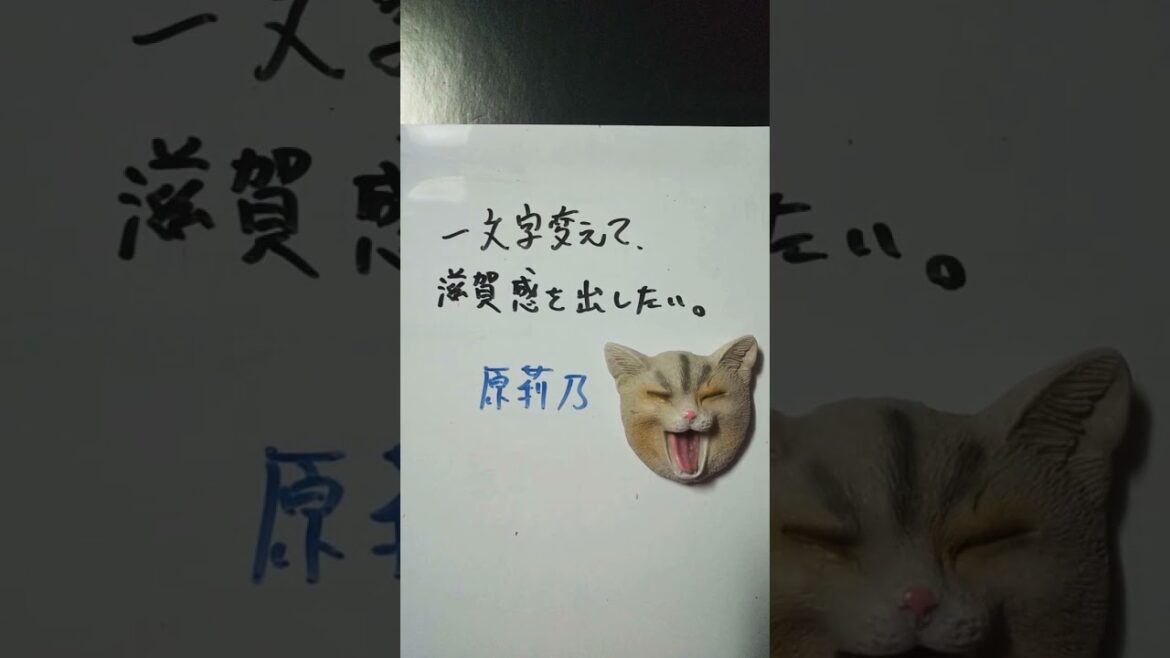 一文字変えて、
滋賀感を出したい。
原莉乃